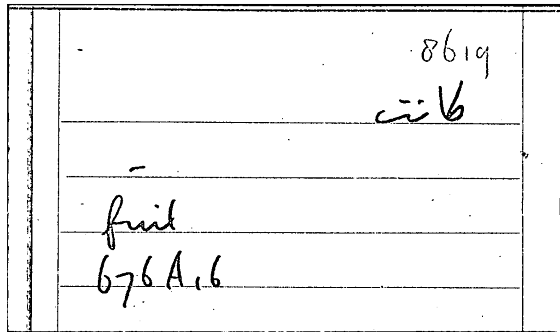 8619
كانت
finit
676 A, 6